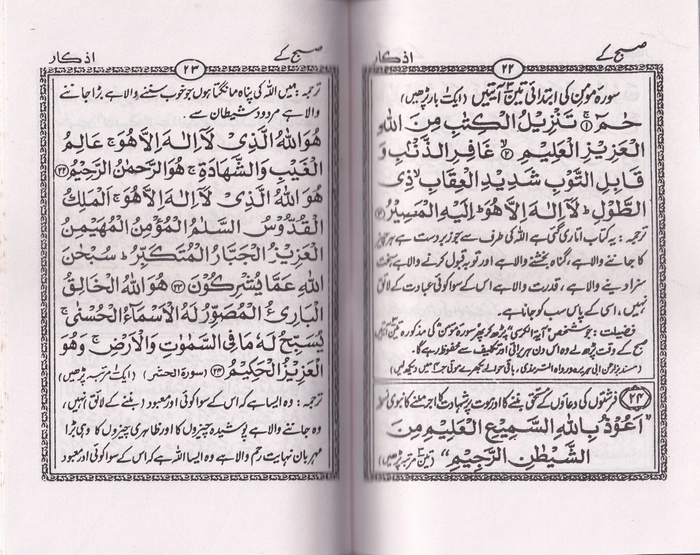 صبح کے
۲۲
اذکار
سورہ مومن کی ابتدائی تین آیتیں (ایک بار پڑھیں)
حٰمٓ ۚ﴿۱﴾ تَنْزِیْلُ الْکِتٰبِ مِنَ اللّٰهِ
الْعَزِیْزِ الْعَلِیْمِ ﴿۲﴾ غَافِرِ الذَّنْۢبِ وَ
قَابِلِ التَّوْبِ شَدِیْدِ الْعِقَابِ ۙ ذِی
الطَّوْلِ ؕ لَاۤ اِلٰهَ اِلَّا هُوَ ؕ اِلَیْهِ الْمَصِیْرُ ﴿۳﴾
ترجمہ: یہ کتاب اتاری گئی ہے اللہ کی طرف سے جو زبردست ہے ہر چیز
کا جاننے والا ہے، گناہ بخشنے والا ہے، اور توبہ قبول کرنے والا ہے سخت
سزا دینے والا ہے، قدرت والا ہے اس کے سوا کوئی عبادت کے لائق
نہیں، اسی کے پاس سب کو جانا ہے۔
فضیلت: جو شخص آیۃ الکرسی پڑھ کر پھر سورہ مومن کی مذکورہ تین آیتیں
صبح کے وقت پڑھ لے وہ اس دن ہر برائی اور تکلیف سے محفوظ رہے گا۔
۲۴ فرشتوں کی دعاؤں کے مستحق بننے کا اور موت پر شہادت کا اجر ملنے کا نبوی نسخہ
"اَعُوْذُ بِاللّٰهِ السَّمِیْعِ الْعَلِیْمِ مِنَ
الشَّیْطٰنِ الرَّجِیْمِ" (تین مرتبہ پڑھیں)
صبح کے
۲۳
اذکار
ترجمہ: میں اللہ کی پناہ مانگتا ہوں جو خوب سننے والا ہے، بڑا جاننے
والا ہے مردود شیطان سے۔
هُوَ اللّٰهُ الَّذِیْ لَاۤ اِلٰهَ اِلَّا هُوَ ۚ عَالِمُ
الْغَیْبِ وَالشَّهَادَةِ ۚ هُوَ الرَّحْمٰنُ الرَّحِیْمُ ﴿۲۲﴾
هُوَ اللّٰهُ الَّذِیْ لَاۤ اِلٰهَ اِلَّا هُوَ ۚ اَلْمَلِكُ
الْقُدُّوْسُ السَّلٰمُ الْمُؤْمِنُ الْمُهَیْمِنُ
الْعَزِیْزُ الْجَبَّارُ الْمُتَكَبِّرُ ؕ سُبْحٰنَ
اللّٰهِ عَمَّا یُشْرِكُوْنَ ﴿۲۳﴾ هُوَ اللّٰهُ الْخَالِقُ
الْبَارِئُ الْمُصَوِّرُ لَهُ الْاَسْمَآءُ الْحُسْنٰی ؕ
یُسَبِّحُ لَهٗ مَا فِی السَّمٰوٰتِ وَالْاَرْضِ ۚ وَهُوَ
الْعَزِیْزُ الْحَكِیْمُ ﴿۲۴﴾ (سورۃ الحشر) (ایک مرتبہ پڑھیں)
ترجمہ: وہ ایسا ہے کہ اس کے سوا کوئی اور معبود (بننے کے لائق) نہیں،
وہ جاننے والا ہے پوشیدہ چیزوں کا اور ظاہری چیزوں کا وہی بڑا
مہربان نہایت رحم والا ہے وہ ایسا اللہ ہے کہ اس کے سوا کوئی اور معبود